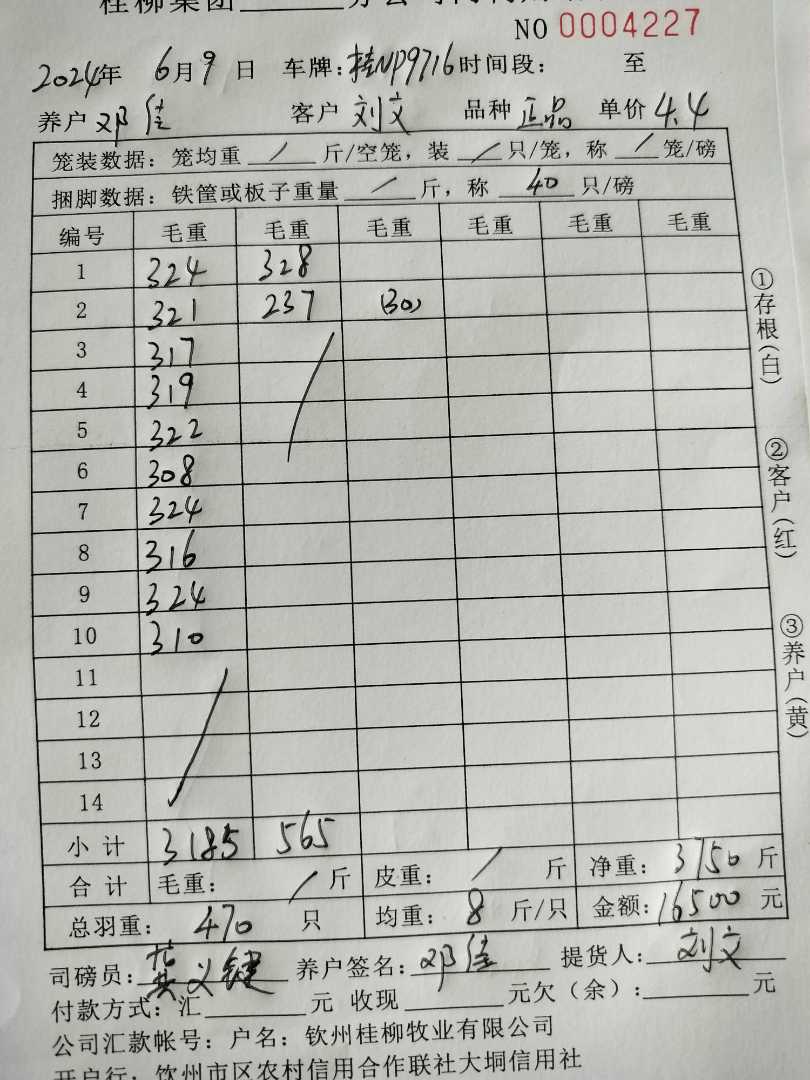 桂柳集团
NO 0004227
2024年 6月9日 车牌:桂NP9716时间段: 至
养户 邓佳 客户 刘文 品种 正品 单价 4.4
笼装数据:笼均重 / 斤/空笼,装 / 只/笼,称 / 笼/磅
捆脚数据:铁筐或板子重量 / 斤,称 40 只/磅
编号 毛重 毛重 毛重 毛重 毛重 毛重
1 324 328
2 321 237 (30)
3 317 /
4 319
5 322
6 308
7 324
8 316
9 324
10 310
11 /
12
13
14
小计 3185 565
合计 毛重: / 斤 皮重: / 斤 净重: 3750 斤
总羽重: 470 只 均重: 8 斤/只 金额: 16500 元
司磅员: 义键 养户签名: 邓佳 提货人: 刘文
付款方式:汇 元 收现 元欠(余): 元
公司汇款帐号:户名:钦州桂柳牧业有限公司
开户行:钦州市区农村信用合作联社大垌信用社
①存根(白)
②客户(红)
③养户(黄)